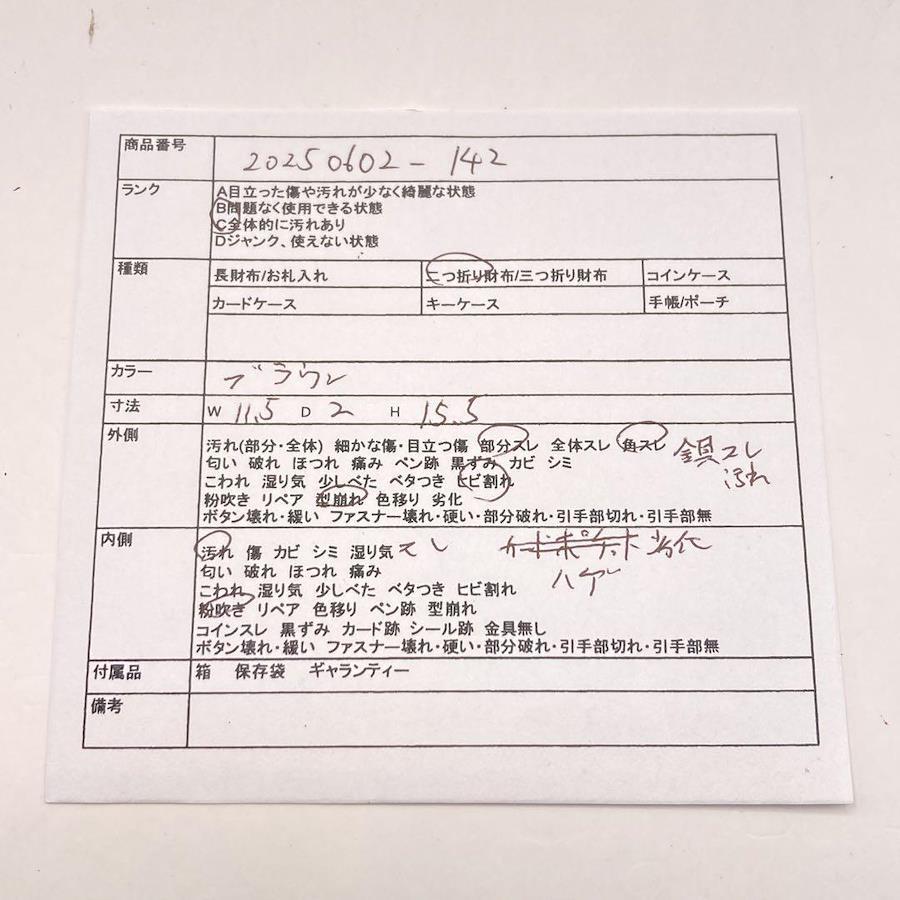 商品番号 20250602-142
ランク A目立った傷や汚れが少なく綺麗な状態
B問題なく使用できる状態
C全体的に汚れあり
Dジャンク、使えない状態
種類 長財布/お札入れ 二つ折り財布/三つ折り財布 コインケース
カードケース キーケース 手帳/ポーチ
カラー ブラウン
寸法 W 11.5 D 2 H 15.5
外側 汚れ(部分・全体) 細かな傷・目立つ傷 部分スレ 全体スレ 角スレ
匂い 破れ ほつれ 痛み ペン跡 黒ずみ カビ シミ
スレ
汚れ
こわれ 湿り気 少しべた ベタつき ヒビ割れ
粉吹き リペア 型崩れ 色移り 劣化
ボタン壊れ・緩い ファスナー壊れ・硬い・部分破れ・引手部切れ・引手部無
内側 汚れ 傷 カビ シミ 湿り気 スレ 劣化
匂い 破れ ほつれ 痛み ハゲ
こわれ 湿り気 少しべた ベタつき ヒビ割れ
粉吹き リペア 色移り ペン跡 型崩れ
コインスレ 黒ずみ カード跡 シール跡 金具無し
ボタン壊れ・緩い ファスナー壊れ・硬い・部分破れ・引手部切れ・引手部無
付属品 箱 保存袋 ギャランティー
備考